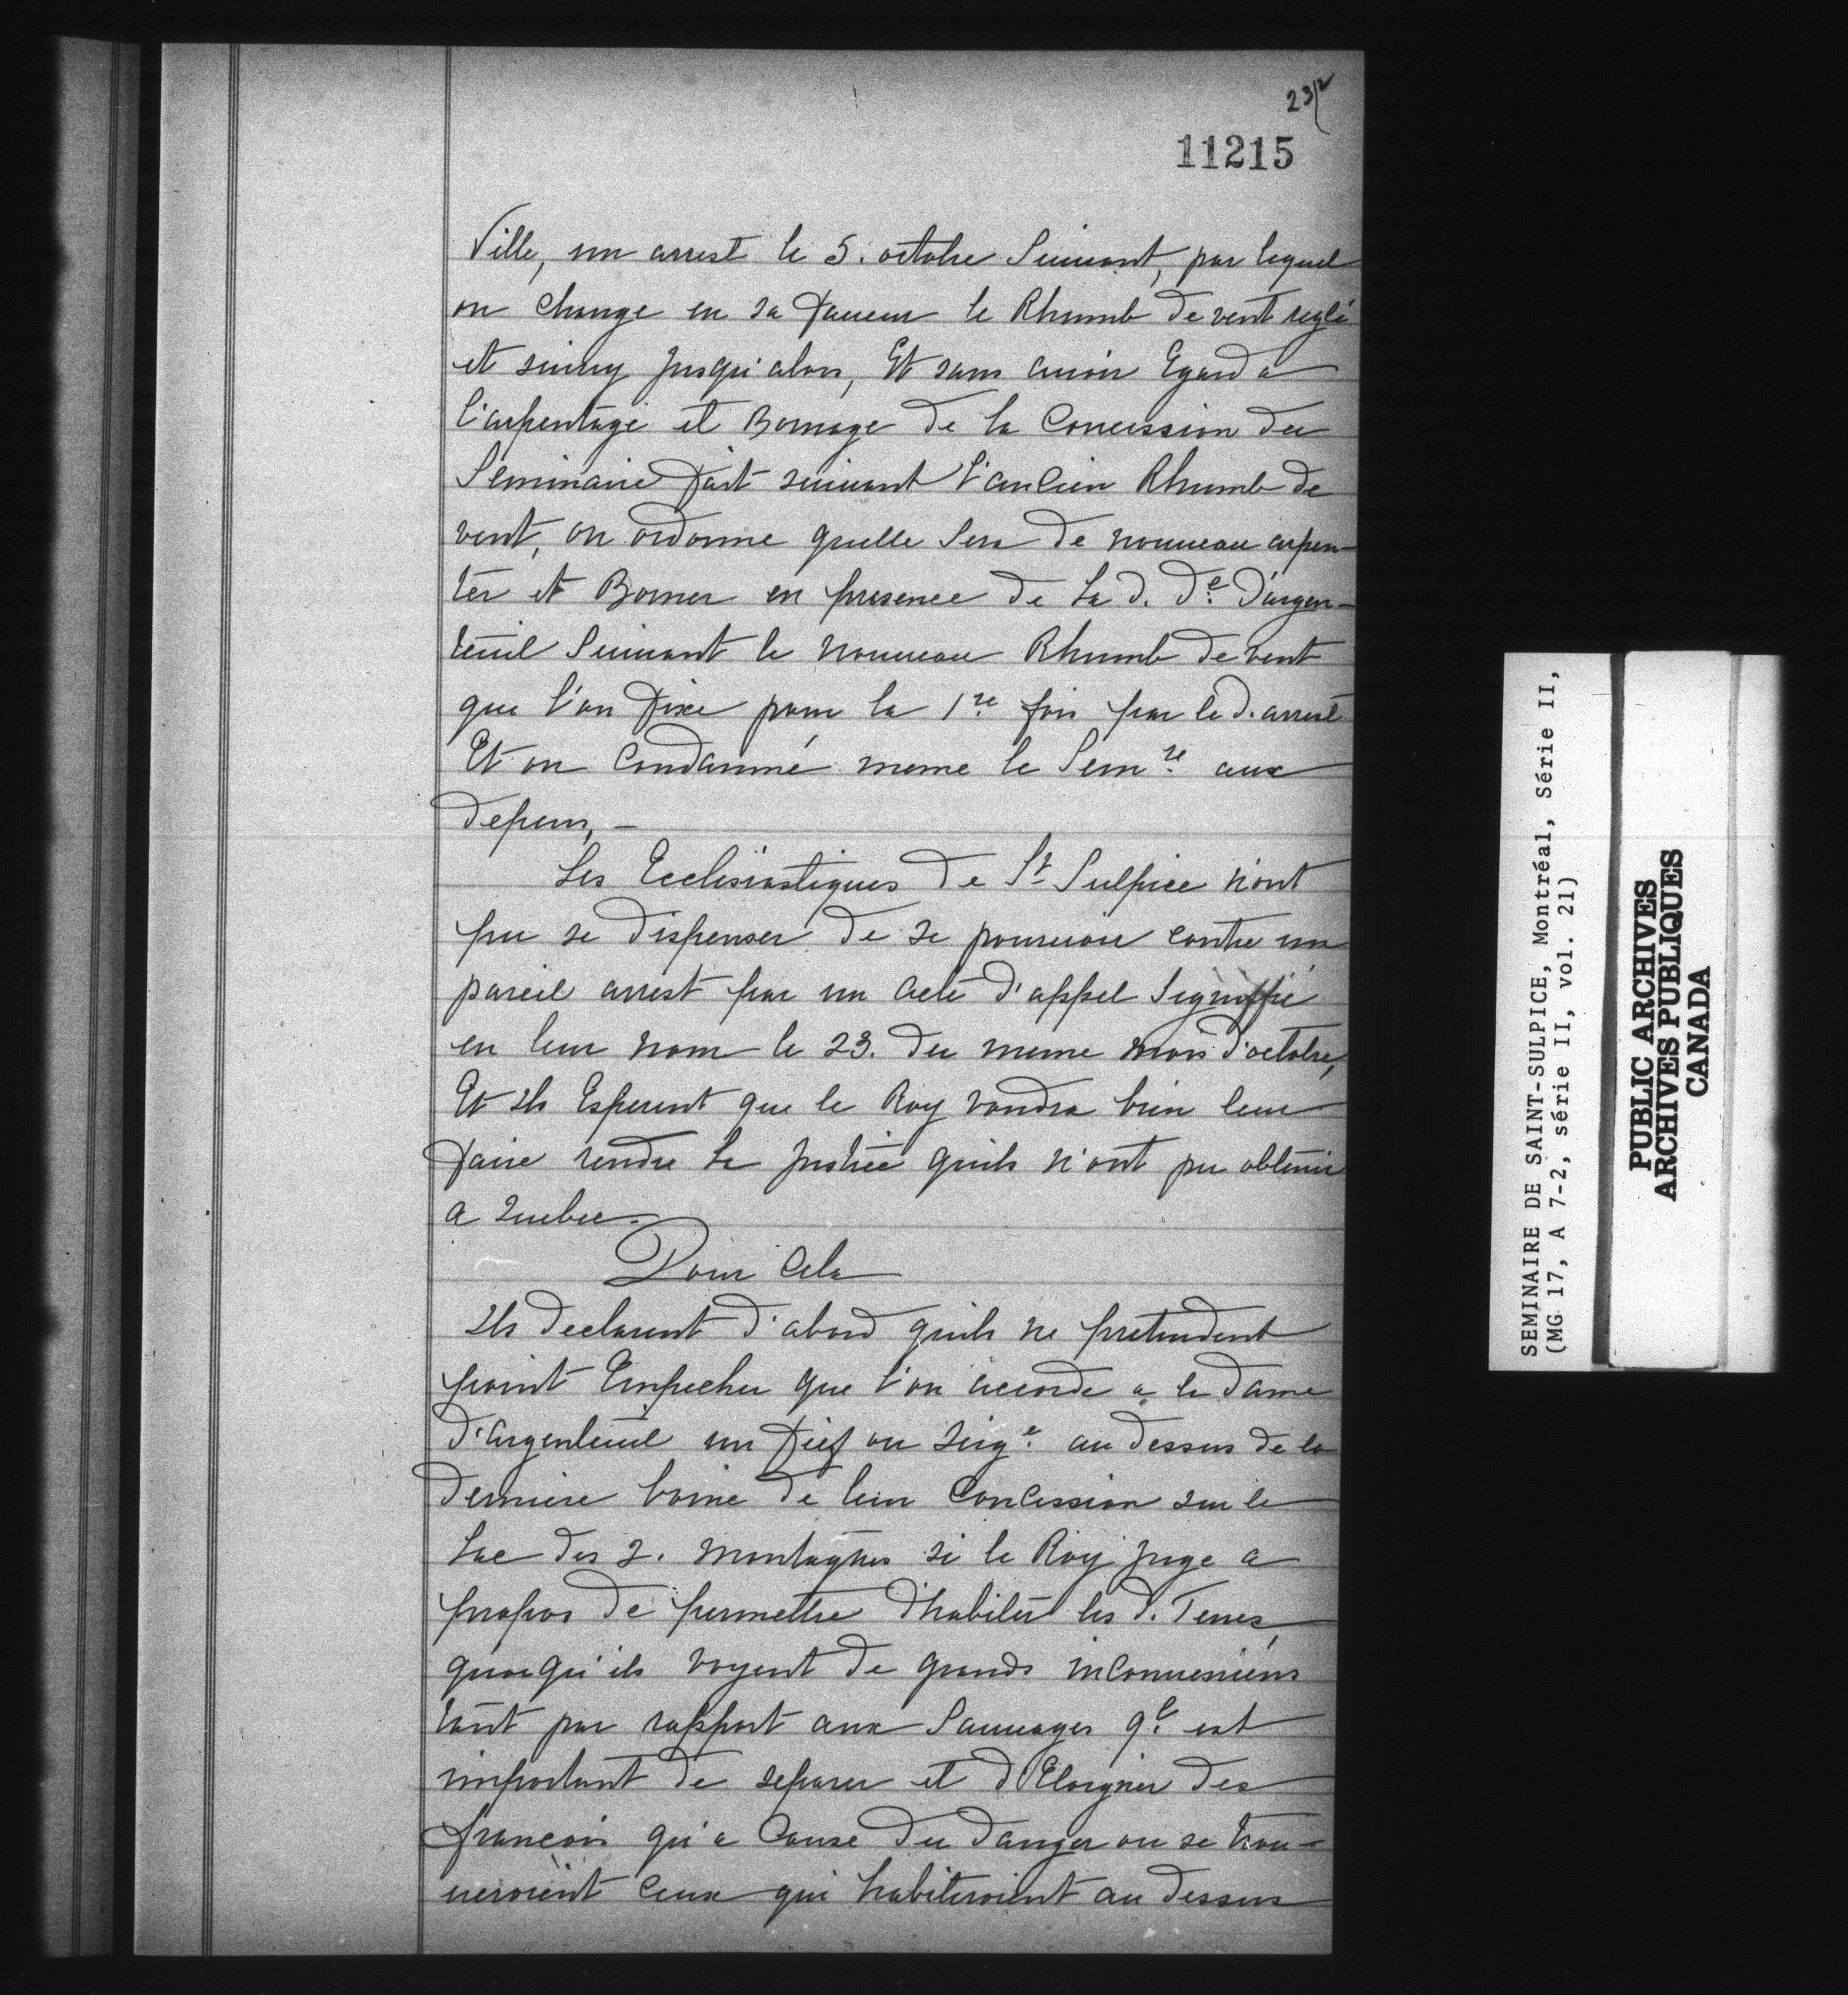 232
11215
Ville, un arrest le 5. octobre Suiuant, par lequel
on change en sa faueur le Rhumb de vent reglé
et suiuy jusqu'alors, Et sans auoir Egard a
l'arpentage et Bornage de la Concession du
Seminaire fait suiuant l'ancien Rhumb de
vent, on ordonne quelle sera de nouueau arpen-
ter et Borner en presence de La d. De. D'argen-
teuil Suiuant le nouueau Rhumb de vent
que l'on fixe pour la 1re fois par le d. arrest
Et on Condamné meme le Semre aux
depens, -
Les Ecclesiastiques de St Sulpice n'ont
pu se dispenser de se pouruoir contre un
pareil arrest par un acte d'appel Signiffié
en leur nom le 23. du meme mois d'octobre,
Et ils Esperent que le Roy voudra bien leur
faire rendre La Justice quils n'ont pu obtenir
a Quebec.
Pour Cela
ils declarent d'abord quils ne pretendent
point Empecher que l'on accorde a la Dame
d'argenteuil un fief ou seige. au dessus de la
derniere borne de leur Concession sur le
Lac des 2. montagnes si le Roy juge a
propos de permettre d'habiter les d. Terres,
quoiqu'ils voyent de grands inconueniens
tant par rapport aux Sauuages ql. est
important de separer et d'Eloigner des
françois qu'a Cause du danger ou se trou-
ueroient Ceux qui habiteroient au dessus
SEMINAIRE DE SAINT-SULPICE, Montréal, Série II,
(MG 17, A 7-2, série II, vol. 21)
PUBLIC ARCHIVES
ARCHIVES PUBLIQUES
CANADA